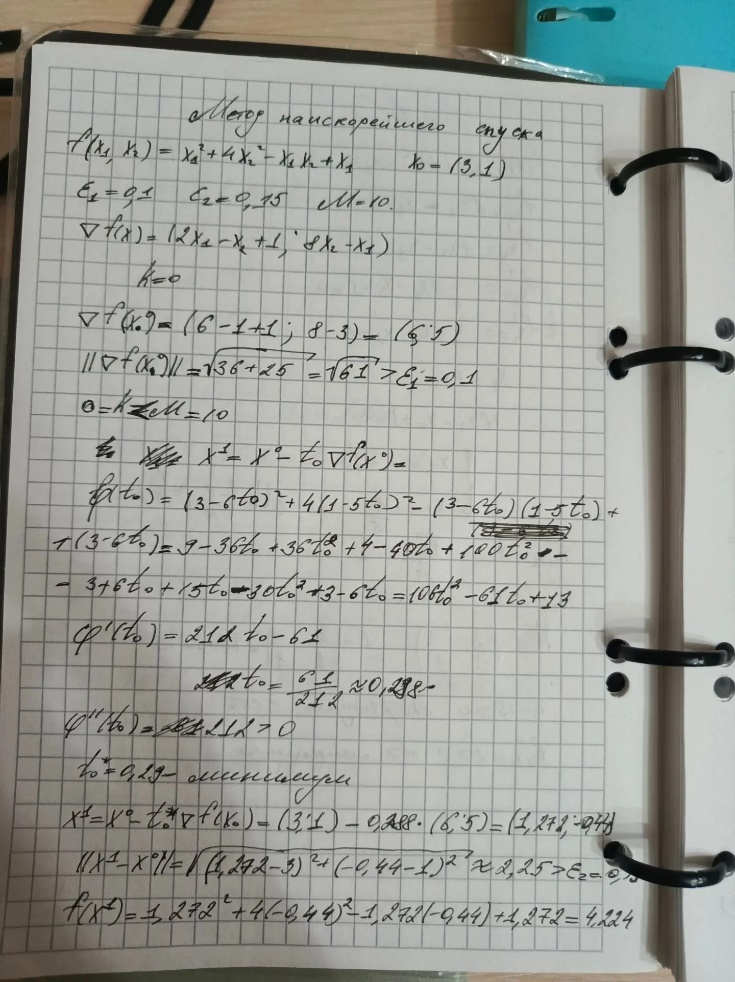 Метод наискорейшего спуска
f(x₁, x₂) = x₁² + 4x₂² - x₁x₂ + x₁   x₀ = (3, 1)
ε₁ = 0,1   ε₂ = 0,15   M = 10.
∇f(x) = (2x₁ - x₂ + 1; 8x₂ - x₁)
k = 0
∇f(x⁰) = (6 - 1 + 1; 8 - 3) = (6; 5)
||∇f(x⁰)|| = √36 + 25 = √61 > ε₁ = 0,1
0 = k < M = 10
x¹ = x⁰ - t₀∇f(x⁰) =
φ(t₀) = (3 - 6t₀)² + 4(1 - 5t₀)² - (3 - 6t₀)(1 - 5t₀) +
+ (3 - 6t₀) = 9 - 36t₀ + 36t₀² + 4 - 40t₀ + 100t₀² -
- 3 + 6t₀ + 15t₀ - 30t₀² + 3 - 6t₀ = 106t₀² - 61t₀ + 13
φ'(t₀) = 212 t₀ - 61
t₀ = 61/212 ≈ 0,288
φ''(t₀) = 212 > 0
t₀* = 0,29 - минимум
x¹ = x⁰ - t₀*∇f(x₀) = (3; 1) - 0,288 · (6; 5) = (1,272; -0,44)
||x¹ - x⁰|| = √(1,272 - 3)² + (-0,44 - 1)² ≈ 2,25 > ε₂ = 0,15
f(x¹) = 1,272² + 4(-0,44)² - 1,272(-0,44) + 1,272 = 4,224